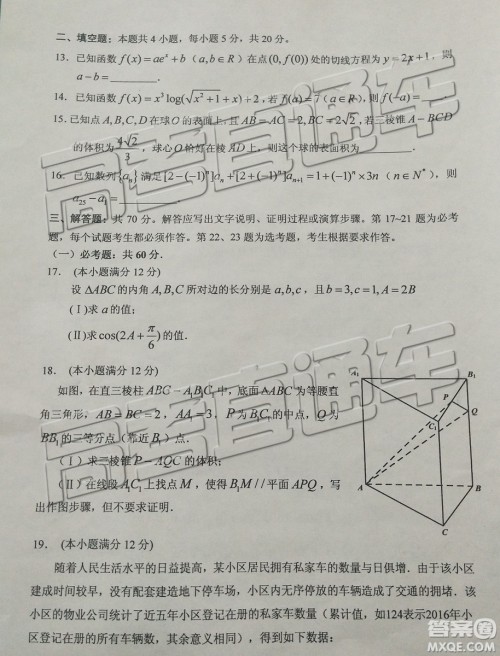 二、填空题：本题共4小题，每小题5分，共20分。
13. 已知函数 f(x)=ae^x+b (a,b∈R) 在点(0,f(0))处的切线方程为 y=2x+1，则
a-b=________.
14. 已知函数 f(x)=x^3 log(√(x^2+1)+x)+2，若 f(a)=7 (a∈R)，则 f(-a)=
15. 已知点A,B,C,D在球O的表面上，且AB=AC=2,BC=2√2，若三棱锥A-BCD
的体积为 4√2/3，球心O恰好在棱AD上，则这个球的表面积为________.
16. 已知数列{a_n}满足[2-(-1)^n]a_n+[2+(-1)^n]a_{n+1}=1+(-1)^n×3n (n∈N^*)，则
a_25-a_1=
三、解答题：共70分。解答应写出文字说明、证明过程或演算步骤。第17~21题为必考
题，每个试题考生都必须作答。第22、23题为选考题，考生根据要求作答。
（一）必考题：共60分.
17. (本小题满分12分)
设△ABC的内角A,B,C所对边的长分别是a,b,c，且b=3,c=1,A=2B
(Ⅰ)求a的值；
(Ⅱ)求cos(2A+π/6)的值.
18. (本小题满分12分)
如图，在直三棱柱ABC-A1B1C1中，底面△ABC为等腰直
角三角形，AB=BC=2，AA1=3，P为B1C1的中点，Q为
BB1的三等分点（靠近B1）点.
(Ⅰ) 求三棱锥P-AQC的体积；
(Ⅱ) 在线段A1C1上找点M，使得B1M//平面APQ，写
出作图步骤，但不要求证明.
A1
B1
P
Q
C1
A
B
C
19. (本小题满分12分)
随着人民生活水平的日益提高，某小区居民拥有私家车的数量与日俱增．由于该小区
建成时间较早，没有配套建造地下停车场，小区内无序停放的车辆造成了交通的拥堵．该
小区的物业公司统计了近五年小区登记在册的私家车数量（累计值，如124表示2016年小
区登记在册的所有车辆数，其余意义相同），得到如下数据：
高考直通车
高考直通车
答案圈
MXQE.COM